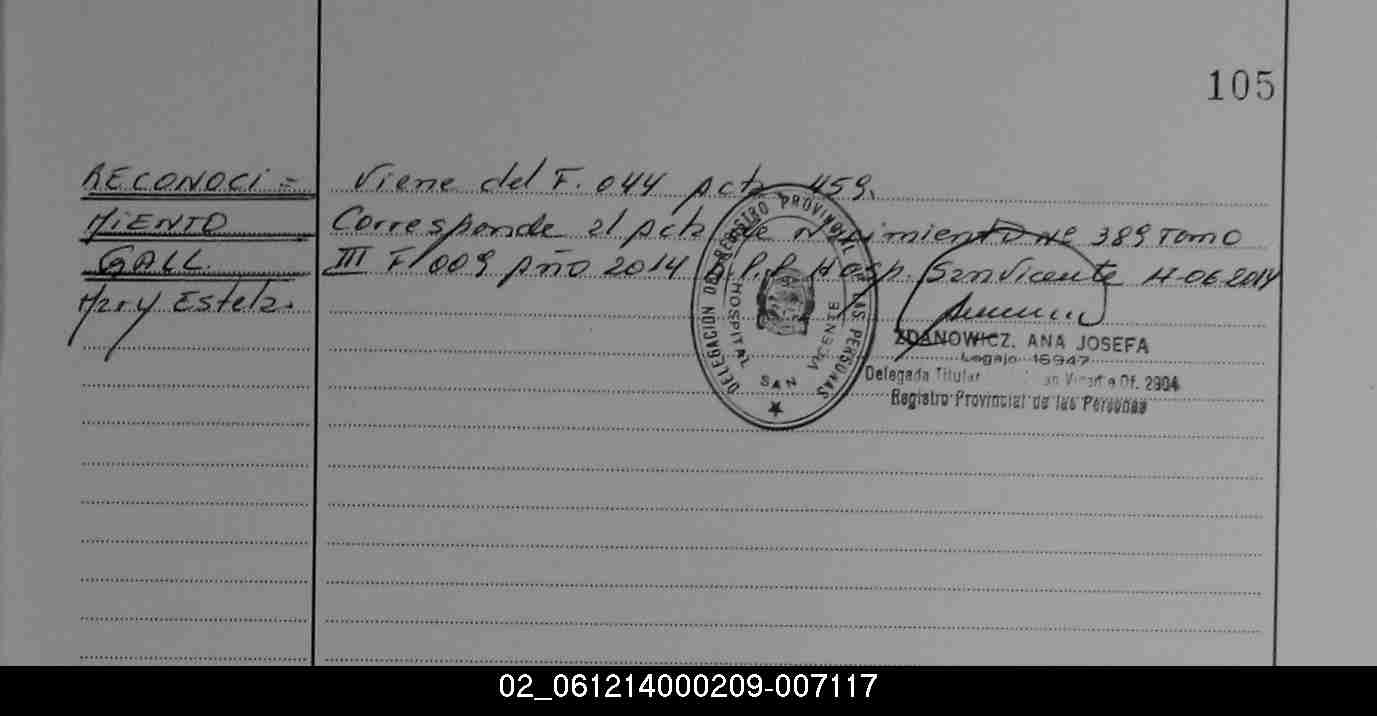 105
RECONOCI=
MIENTO
GALL
Mary Estela.
Viene del F. 044 Acta 459.
Corresponde al Acta de Nacimiento Nº 389 Tomo
III F 009 Año 2014 D.P.P Hosp. San Vicente 11-06-2014
DELEGACIÓN DEL REGISTRO PROVINCIAL DE LAS PERSONAS
HOSPITAL SAN VICENTE
ZDANOWICZ, ANA JOSEFA
Legajo 16947
Delegada Titular Of. 2904
Registro Provincial de las Personas
02_061214000209-007117